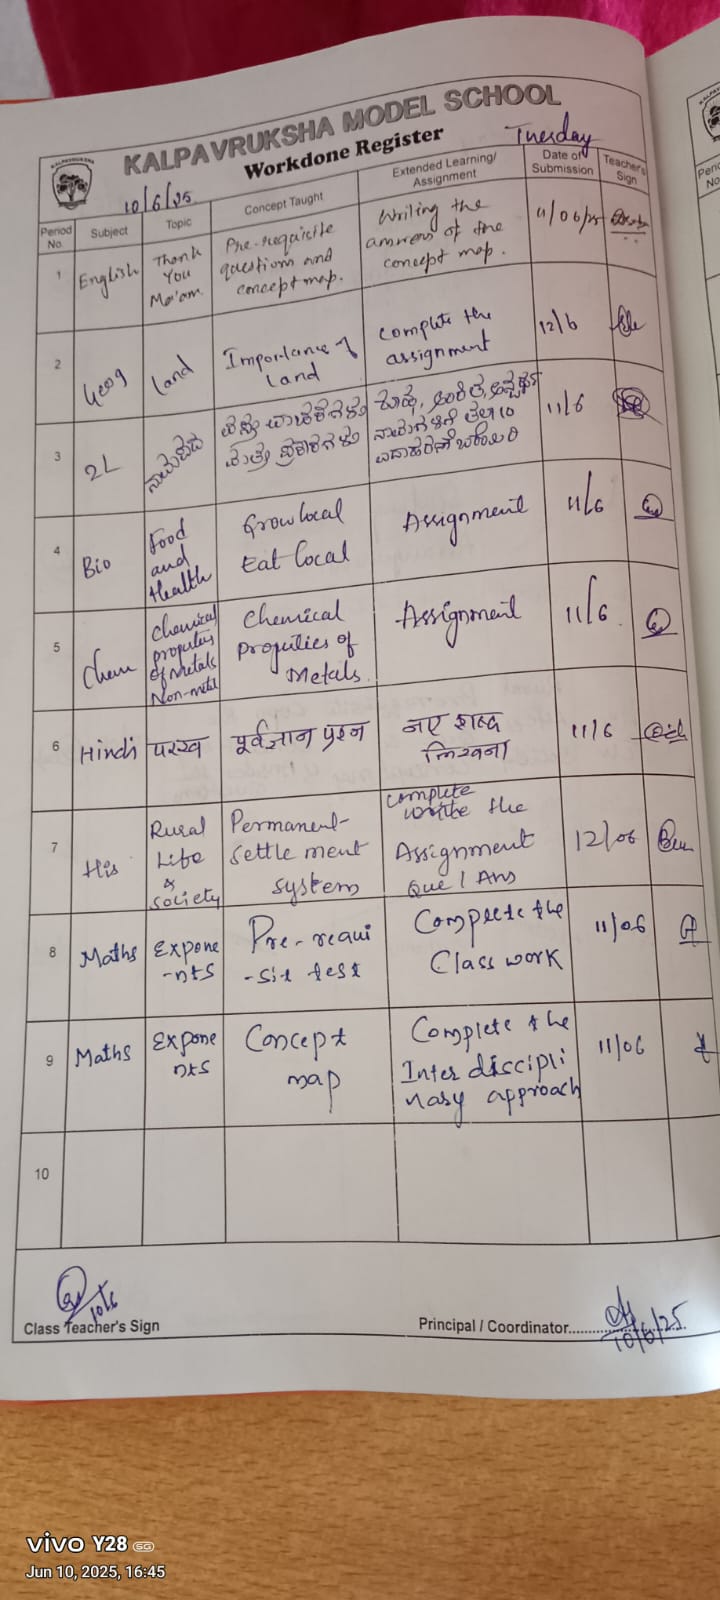 KALPAVRUKSHA MODEL SCHOOL
Workdone Register
Tuesday
10/6/25.
Period No.
Subject
Topic
Concept Taught
Extended Learning/ Assignment
Date of Submission
Teacher's Sign
1
English
Thank
You
Ma'am.
Pre-requisite
questions and
concept map.
Writing the
answers of the
concept map.
11/06/25
2
Geog
Land
Importance of
Land
Complete the
assignment
12/6
3
2L
ನಾಮಪದ
ಮತ್ತು ಪ್ರಕಾರಗಳು
ರೂಢ, ಅಂಕಿತ, ಅನ್ವರ್ಥ
10
11/6
4
Bio
Food
and
Health
Grow local
Eat local
Assignment
11/6
5
Chem
Chemical
properties
of Metals
Non-metal
Chemical
Properties of
Metals.
Assignment
11/6.
6
Hindi
परख
पूर्वज्ञान प्रश्न
नए शब्द
लिखना
11/6
7
His
Rural
Life
&
society
Permanent-
settlement
system
complete
write the
Assignment
Que / Ans
12/06
8
Maths
Expone
-nts
Pre-requi
-sit test
Complete the
Class work
11/06
9
Maths
Expone
nts
Concept
map
Complete the
Inter discipli
nary approach
11/06
10
10/6
Class Teacher's Sign
Principal / Coordinator..............
10/6/25.
vivo Y28 5G
Jun 10, 2025, 16:45